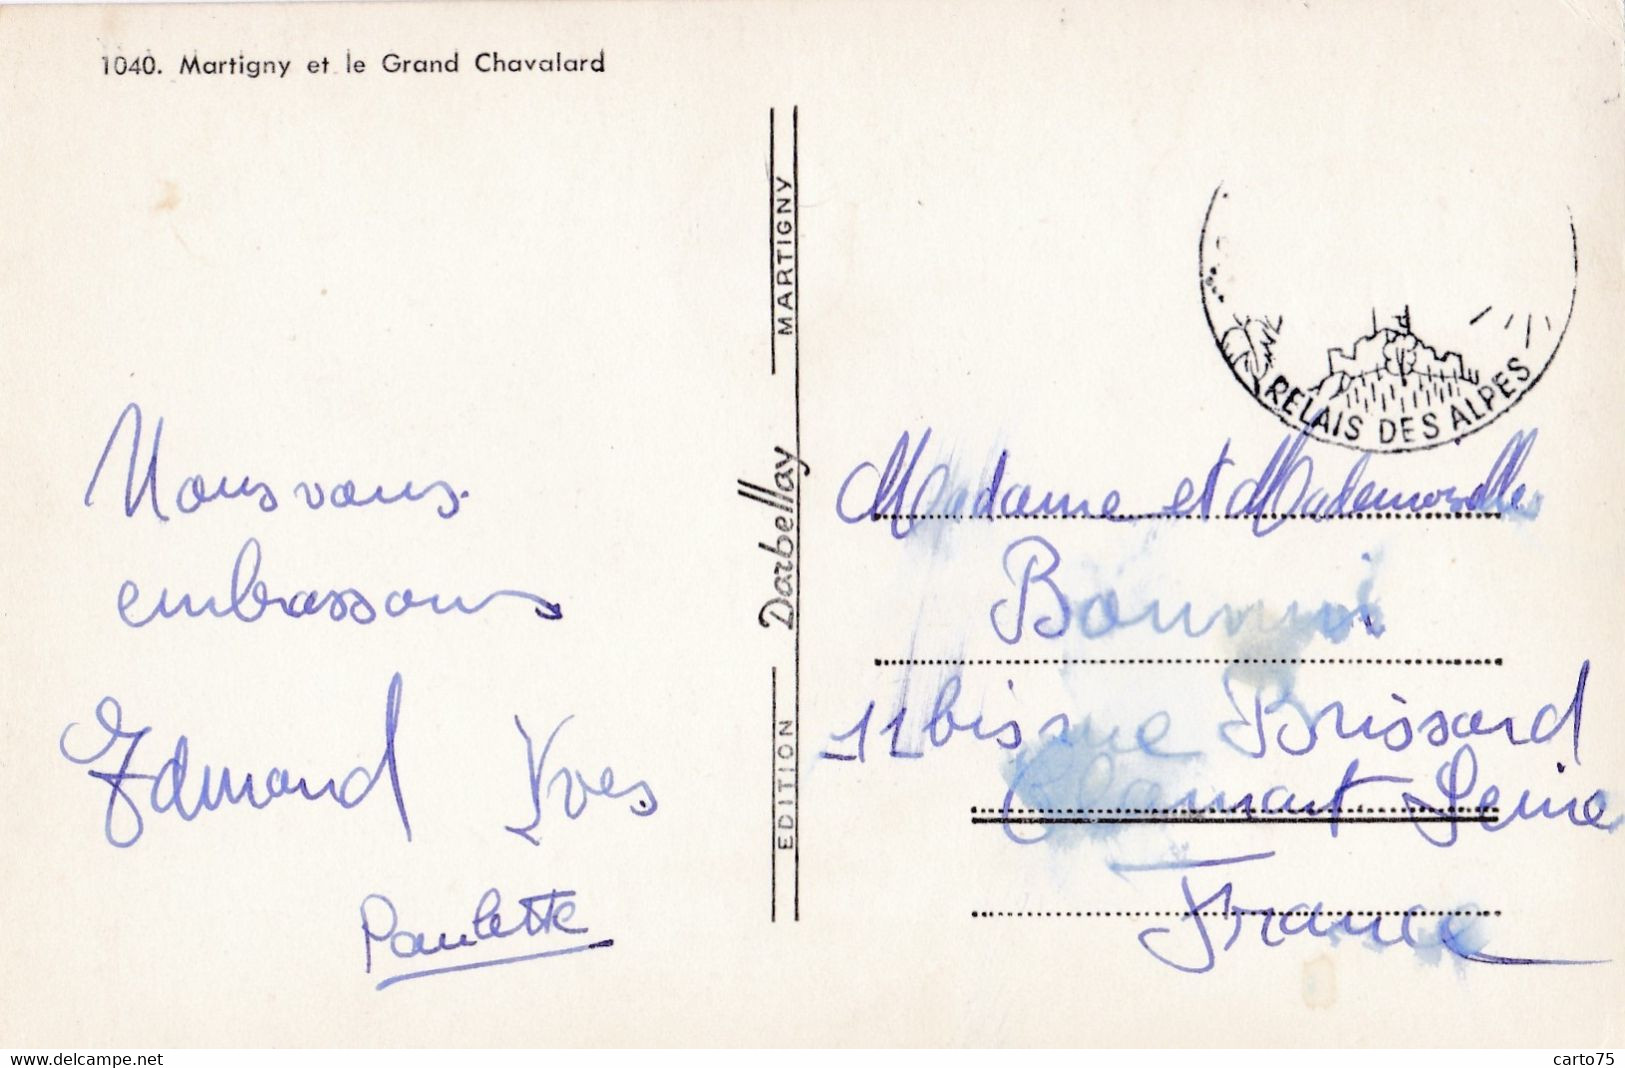 1040. Martigny et le Grand Chavalard
Nous vous
embrassons
Edmond Yves
Paulette
EDITION Darbellay MARTIGNY
RELAIS DES ALPES
Madame et Mademoiselle
11 bis rue Brissard
Clamart Seine
France
www.delcampe.net
carto75